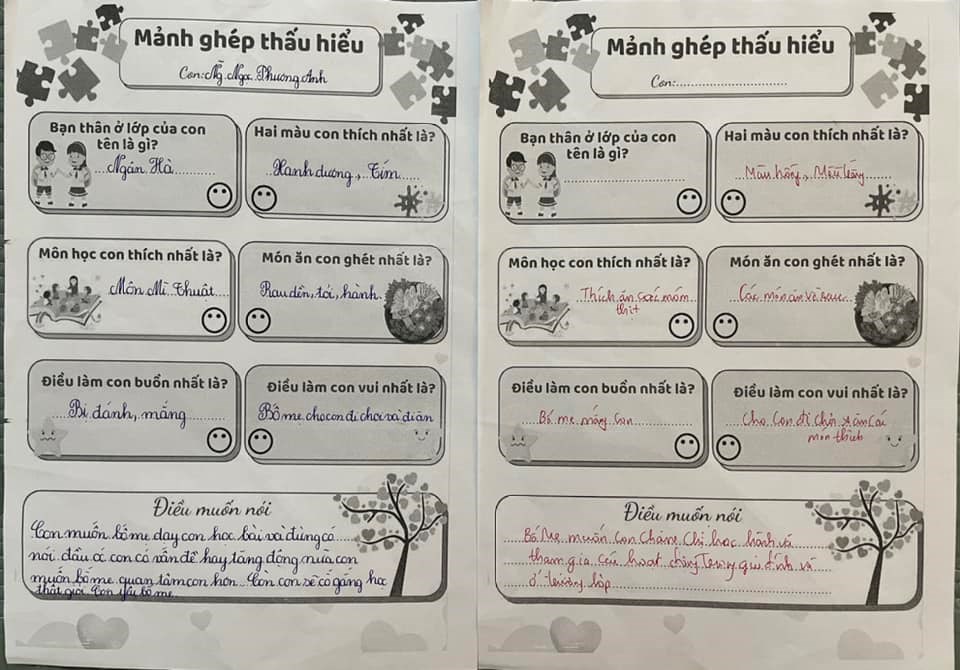 Mảnh ghép thấu hiểu
Con: Ng̃. Ngọc Phương Anh
Bạn thân ở lớp của con
tên là gì?
Ngân Hà
Hai màu con thích nhất là?
Xanh dương, Tím
Môn học con thích nhất là?
Môn Mĩ Thuật
Món ăn con ghét nhất là?
Rau dền, tỏi, hành
Điều làm con buồn nhất là?
Bị đánh, mắng
Điều làm con vui nhất là?
Bố mẹ cho con đi chơi và đi ăn
Điều muốn nói
Con muốn bố mẹ dạy con học bài và đừng có
nói đầu óc con có vấn đề hay tăng động nữa con
muốn bố mẹ quan tâm con hơn. Còn con sẽ cố gắng học
thật giỏi. Con yêu bố mẹ
Mảnh ghép thấu hiểu
Con:
Bạn thân ở lớp của con
tên là gì?
Hai màu con thích nhất là?
Màu hồng, Mầu trắng
Môn học con thích nhất là?
Thích ăn các móm
thịt
Món ăn con ghét nhất là?
Các món ăn về rau
Điều làm con buồn nhất là?
Bố mẹ mắng con
Điều làm con vui nhất là?
Cho con đi chơi và ăn cái
mon thích
Điều muốn nói
Bố Mẹ muốn con chăm chỉ học hành và
tham gia các hoạt động trong gia đình và
ở trường lớp